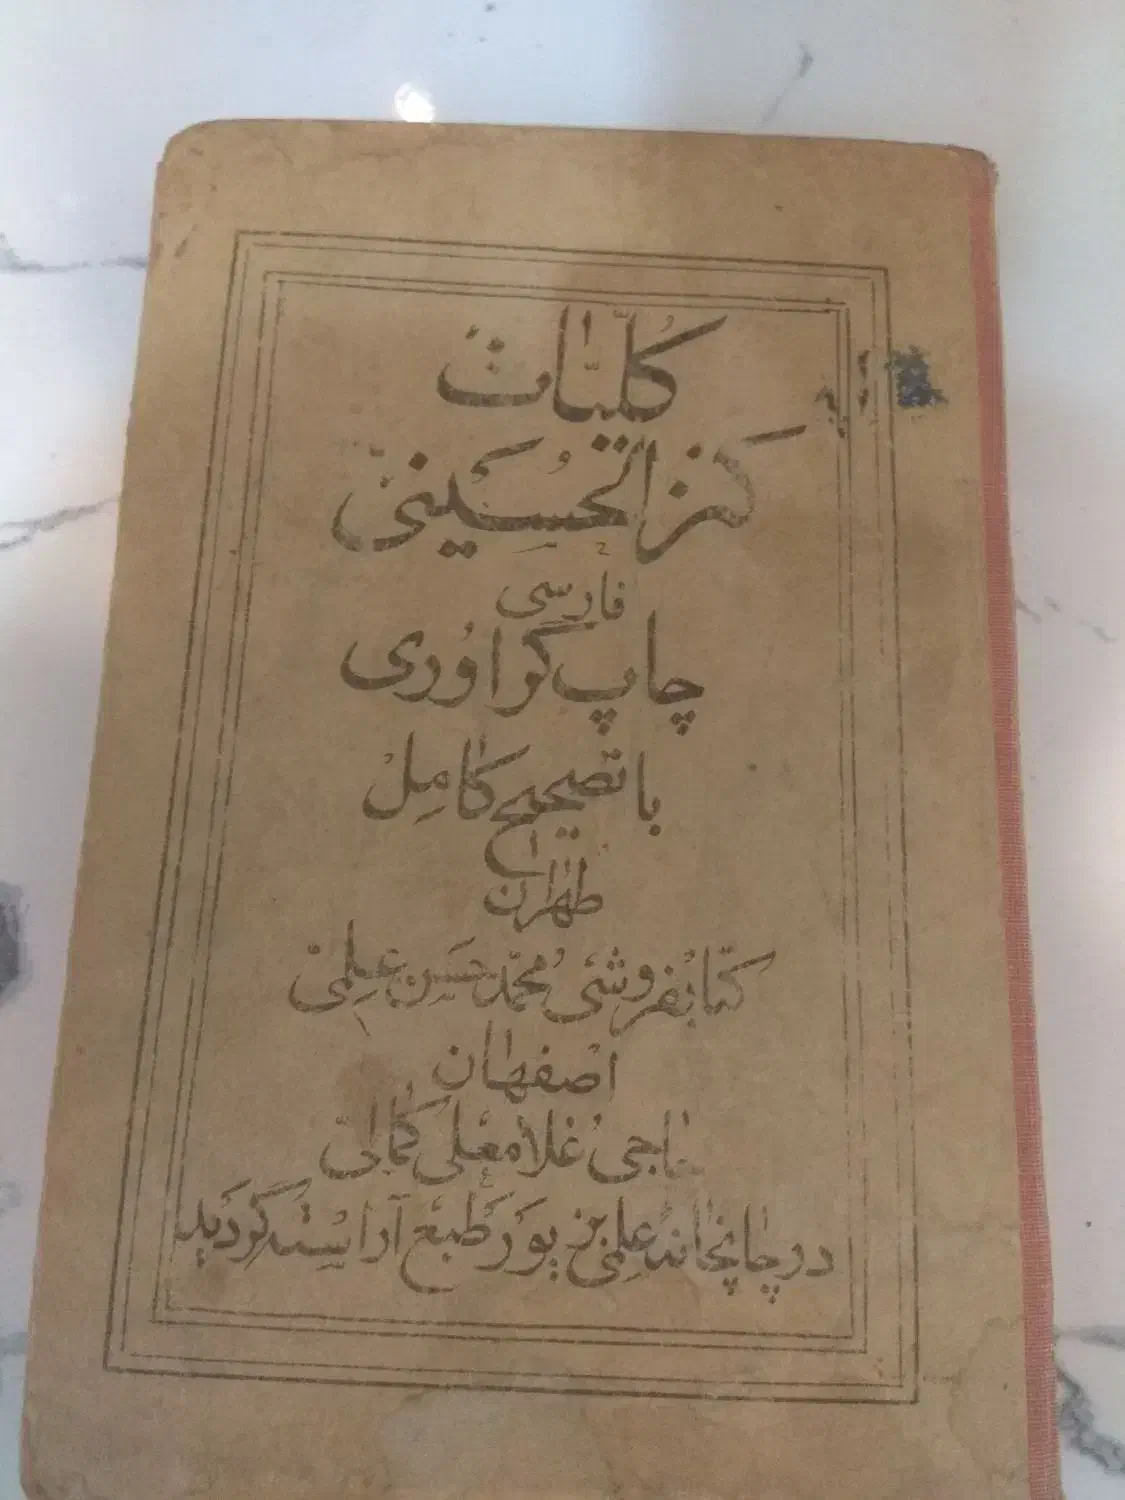 کُلیّات
کنز الحُسینی
فارسی
چاپ گراوُری
با تصحیح کامِل
طهران
کتابفروشی محمّد حَسَن عِلمی
اصفهان
حاجی غلامعلی کمالی
در چاپخانه علمی بزیور طبع آراسته گردید